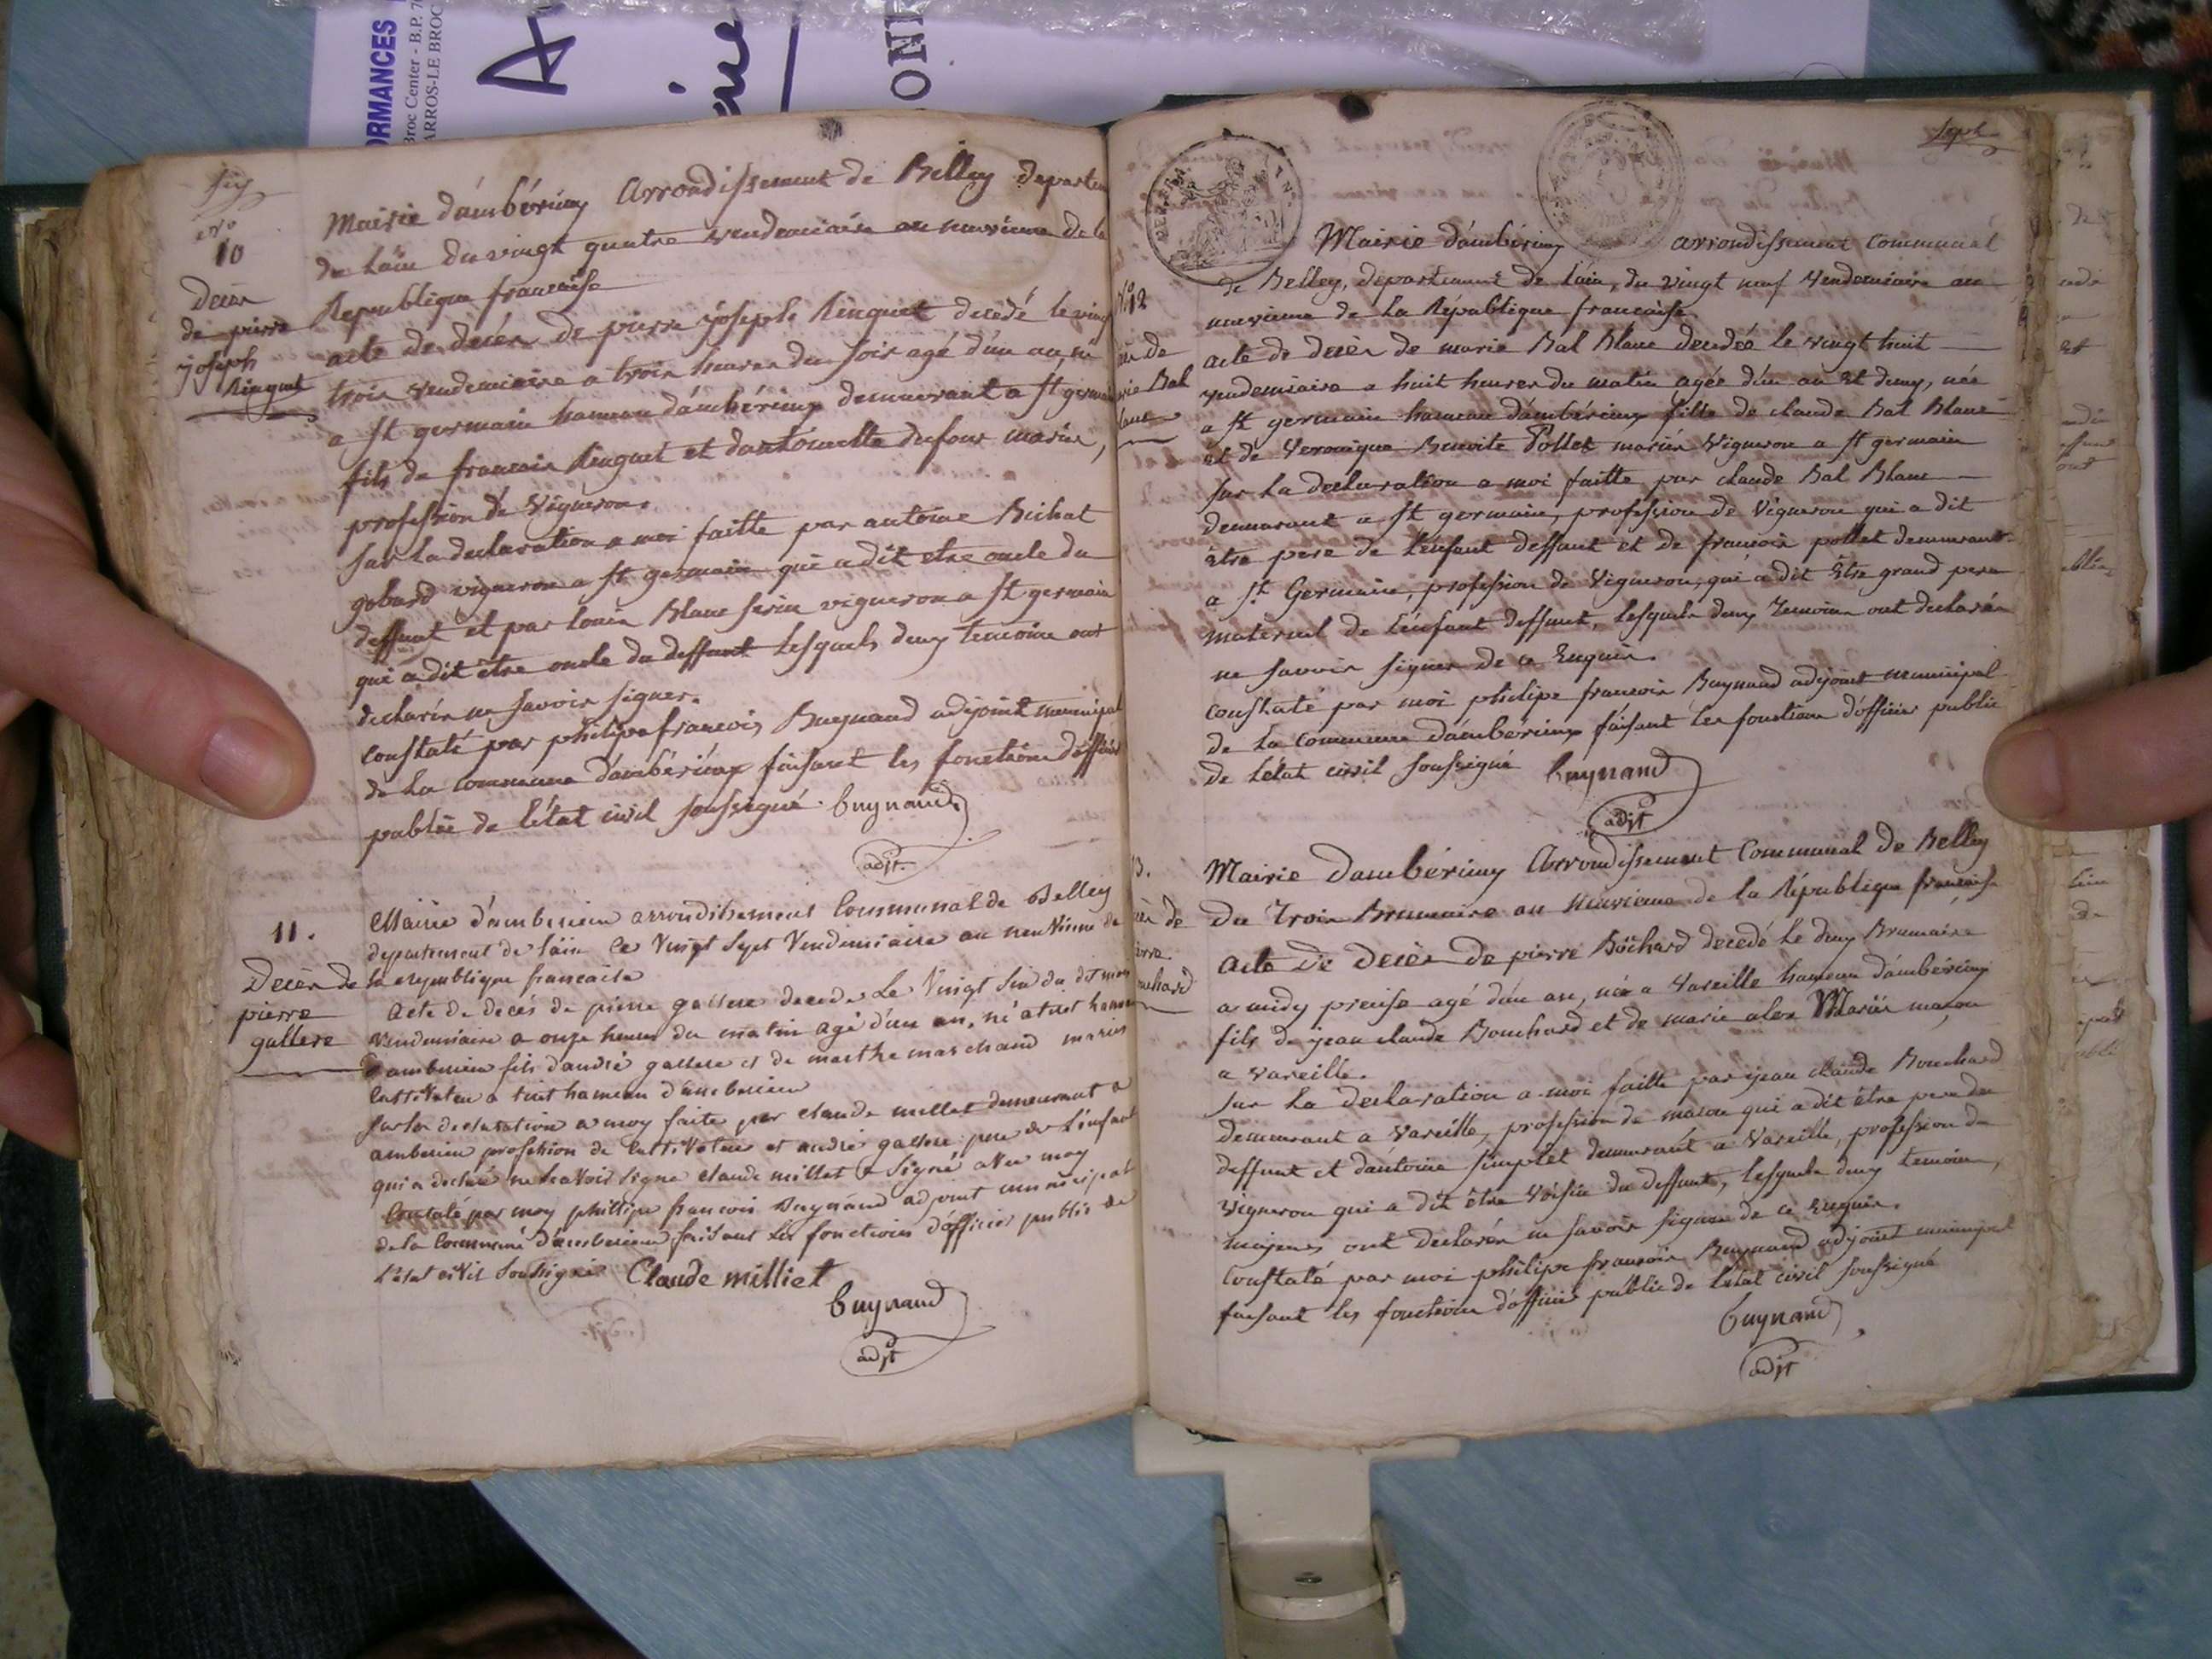 ORMANCES
Broc Center - B.P. 7
ARROS-LE BROC
A
ire
ONF
six
N°
10
Decès
de pierre
joseph
Ringuet
Mairie d'ambérieux Arrondissement de Belley departem
de l'ain du vingt quatre vendemiaire an neuvieme de la
Republique francaise
acte de decès de pierre joseph Ringuet decedé le vingt
trois vendemiaire a trois heures du soir agé d'un an, né
a st germain hameau d'ambérieux demeurant a st germain
fils de francois Ringuet et d'antoinette dufour mariés,
profession de Vigneron.
sur la declaration a moi faitte par antoine Bichat
gobard vigneron a st germain qui a dit etre oncle du
deffunt et par louis Blanc serin vigneron a st germain
qui a dit être oncle du deffunt lesquels deux temoins ont
declarés ne savoir signer.
constaté par philipe francois Buynand adjoint municipal
de la commune d'ambérieux faisant les fonctions d'officier
public de l'état civil soussigné. buynand
adjt.
11.
Decès de
pierre
gallere
Mairie d'amberieu arrondissement Communal de Belley
departement de l'ain Ce Vingt Sept Vendemiaire an neuvieme de
la republique francaise
Acte de decès de pierre gallere decedé Le Vingt Six du dit mois
Vendemiaire a onze heures du matin agé d'un an, né a tiret hameau
d'amberieu fils d'andré gallere et de marthe marchand mariés
Cultivateu a tiret hameau d'amberieu
Sur la declaration a moy faite par claude millet demeurant a
amberieu profession de Cultivateur et andré gallere pere de L'enfant
qui a declaré ne scavoir signe claude millet a Signé avec moy
Constaté par moy phillipe francois Buynand adjoint municipal
de la Commune d'amberieu faisant les fonctions d'officier public de
l'etat civil Soussigné Claude milliet
buynand
adjt
septe
N° 12
ès de
rie Bal
lanc
Mairie d'ambérieux arrondissement Communal
de Belley, departement de l'ain, du vingt neuf vendemiaire an
neuvieme de la République francaise.
acte de decès de marie Bal Blanc decedée le vingt huit
vendemiaire a huit heures du matin agée d'un an et demy, née
a st germain hameau d'ambérieux fille de claude Bal Blanc
et de Veronique Benoite Pollet mariés Vigneron a st germain
sur la declaration a moi faitte par claude Bal Blanc
demeurant a st germain, profession de Vigneron qui a dit
être pere de l'enfant deffunt et de francois pollet demeurant
a st Germain, profession de Vigneron, qui a dit être grand pere
maternel de l'enfant deffunt, lesquels deux temoins ont declarés
ne savoir signer de ce Enquis.
constaté par moi philipe francois Buynand adjoint municipal
de la commune d'ambérieux faisant les fonctions d'officier public
de l'état civil soussigné buynand
adjt
3.
ès de
erre
ouchard
Mairie d'ambérieux Arrondissement Communal de Belley
du trois Brumaire an neuvieme de la République francaise
Acte de decès de pierre Böchard decedé le deux Brumaire
a midy precise agé d'un an, né a Vareille hameau d'ambérieux
fils de jean claude Bouchard et de marie alex Mariés maçon
a vareille.
sur la declaration a moi faitte par jean claude Bouchard
demeurant a vareille, profession de mason qui a dit être pere du
deffunt et d'antoine simplet demeurant a Vareille, profession de
vigneron qui a dit être Voisin du deffunt, lesquels deux temoins,
majeurs ont declarés ne savoir signer de ce Enquis.
constaté par moi philipe francois Buynand adjoint municipal
faisant les fonctions d'officier public de l'état civil soussigné
buynand
adjt